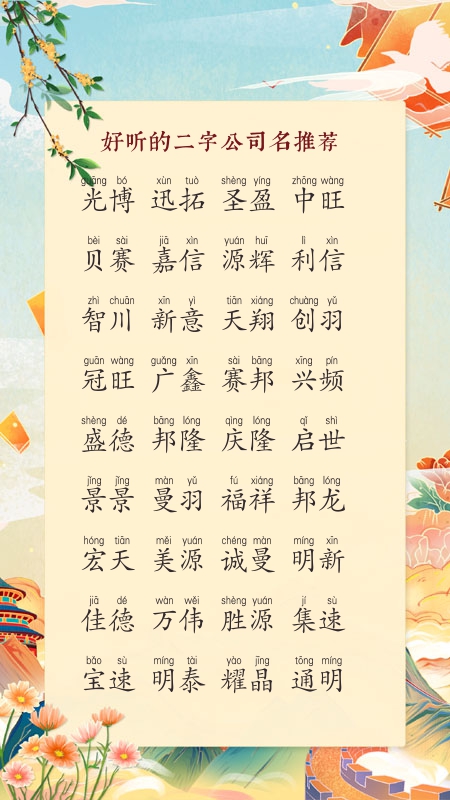 好听的二字公司名推荐
guāng bó xùn tuò shèng yíng zhōng wàng
光博 迅拓 圣盈 中旺
bèi sài jiā xìn yuán huī lì xìn
贝赛 嘉信 源辉 利信
zhì chuān xīn yì tiān xiáng chuàng yǔ
智川 新意 天翔 创羽
guān wàng guǎng xīn sài bāng xīng pín
冠旺 广鑫 赛邦 兴频
shèng dé bāng lóng qìng lóng qǐ shì
盛德 邦隆 庆隆 启世
jǐng jǐng màn yǔ fú xiáng bāng lóng
景景 曼羽 福祥 邦龙
hóng tiān měi yuán chéng màn míng xīn
宏天 美源 诚曼 明新
jiā dé wàn wěi shèng yuán jí sù
佳德 万伟 胜源 集速
bǎo sù míng tài yào jīng tōng míng
宝速 明泰 耀晶 通明